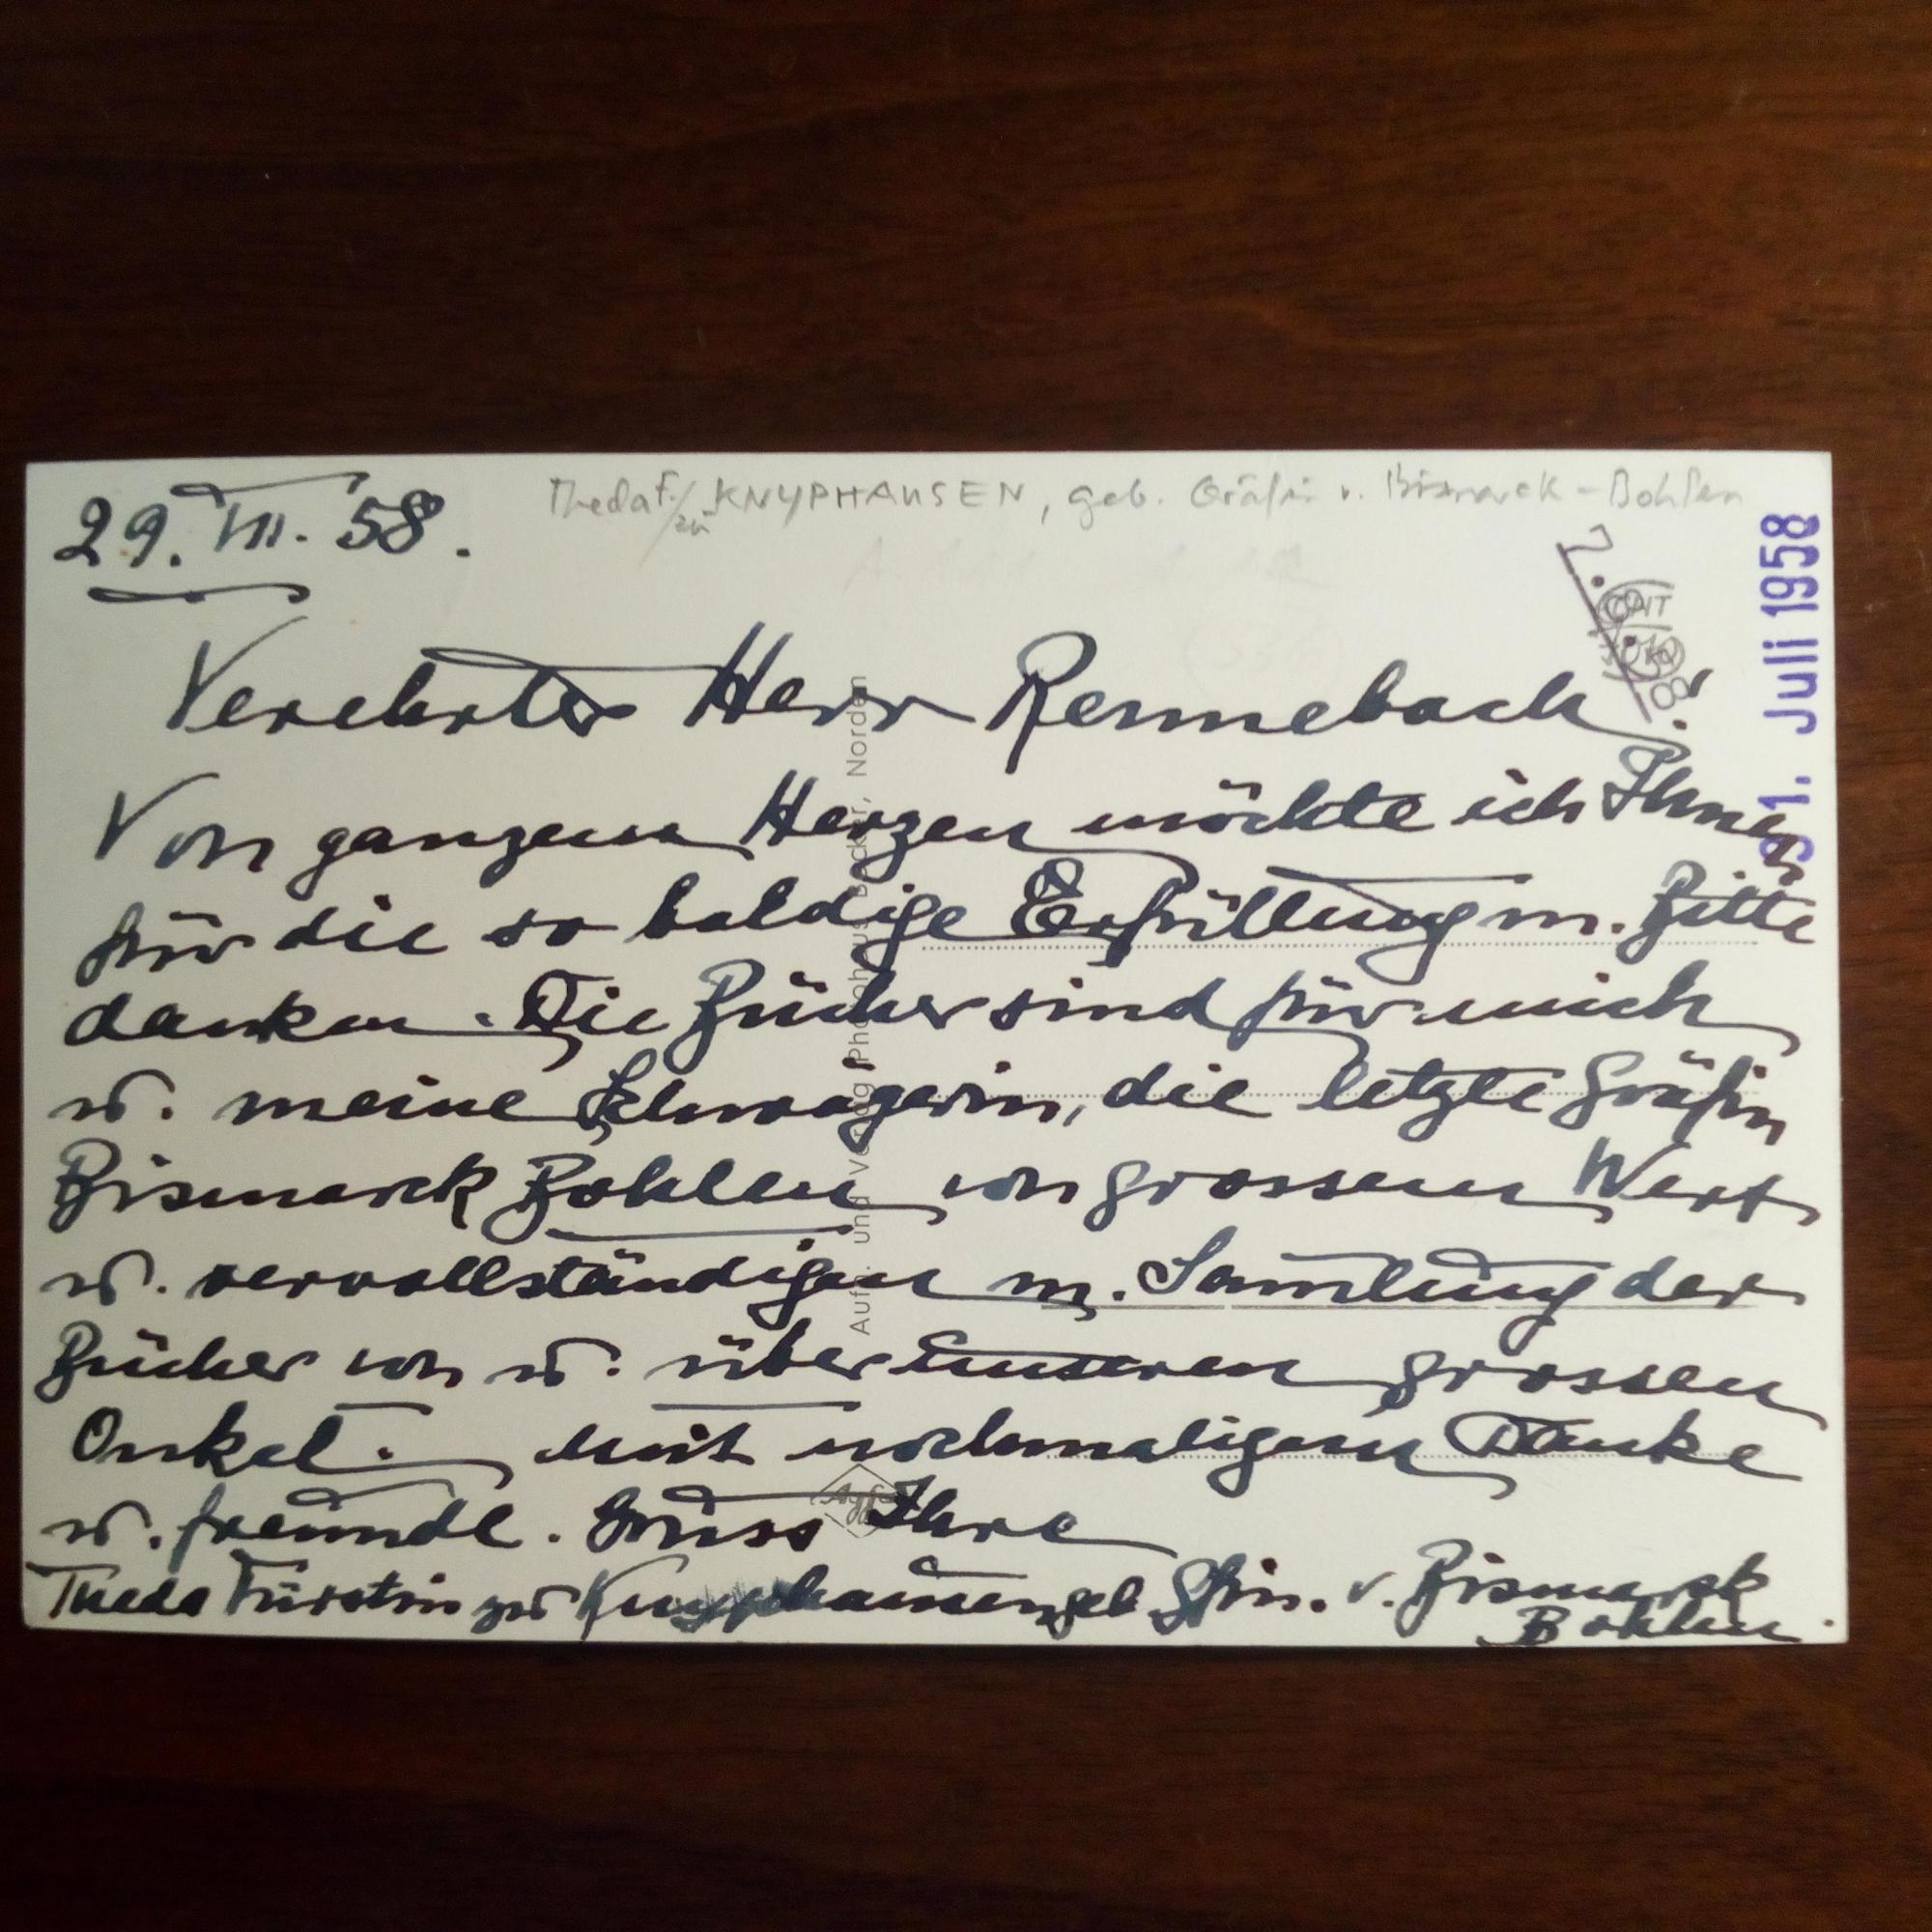 Theda F. zu KNYPHAUSEN, geb. Gräfin v. Bismarck-Bohlen
29. VII. 58.
31. Juli 1958
Verehrter Herr Rennebach!
Von ganzem Herzen möchte ich Ihnen
für die so baldige Erfüllung m. Bitte
danken. Die Bücher sind für mich
u. meine Schwägerin, die letzte Gräfin
Bismarck Bohlen von grossem Wert
u. vervollständigen m. Samlung der
Bücher von u. über unseren grossen
Onkel. Mit nochmaligem Danke
u. freundl. Gruss Ihre
Theda Fürstin zu Knyphausen geb Gfin. v. Bismarck
Bohlen.
Aufn. und Verlag Photohaus Becker, Norden
Agfa